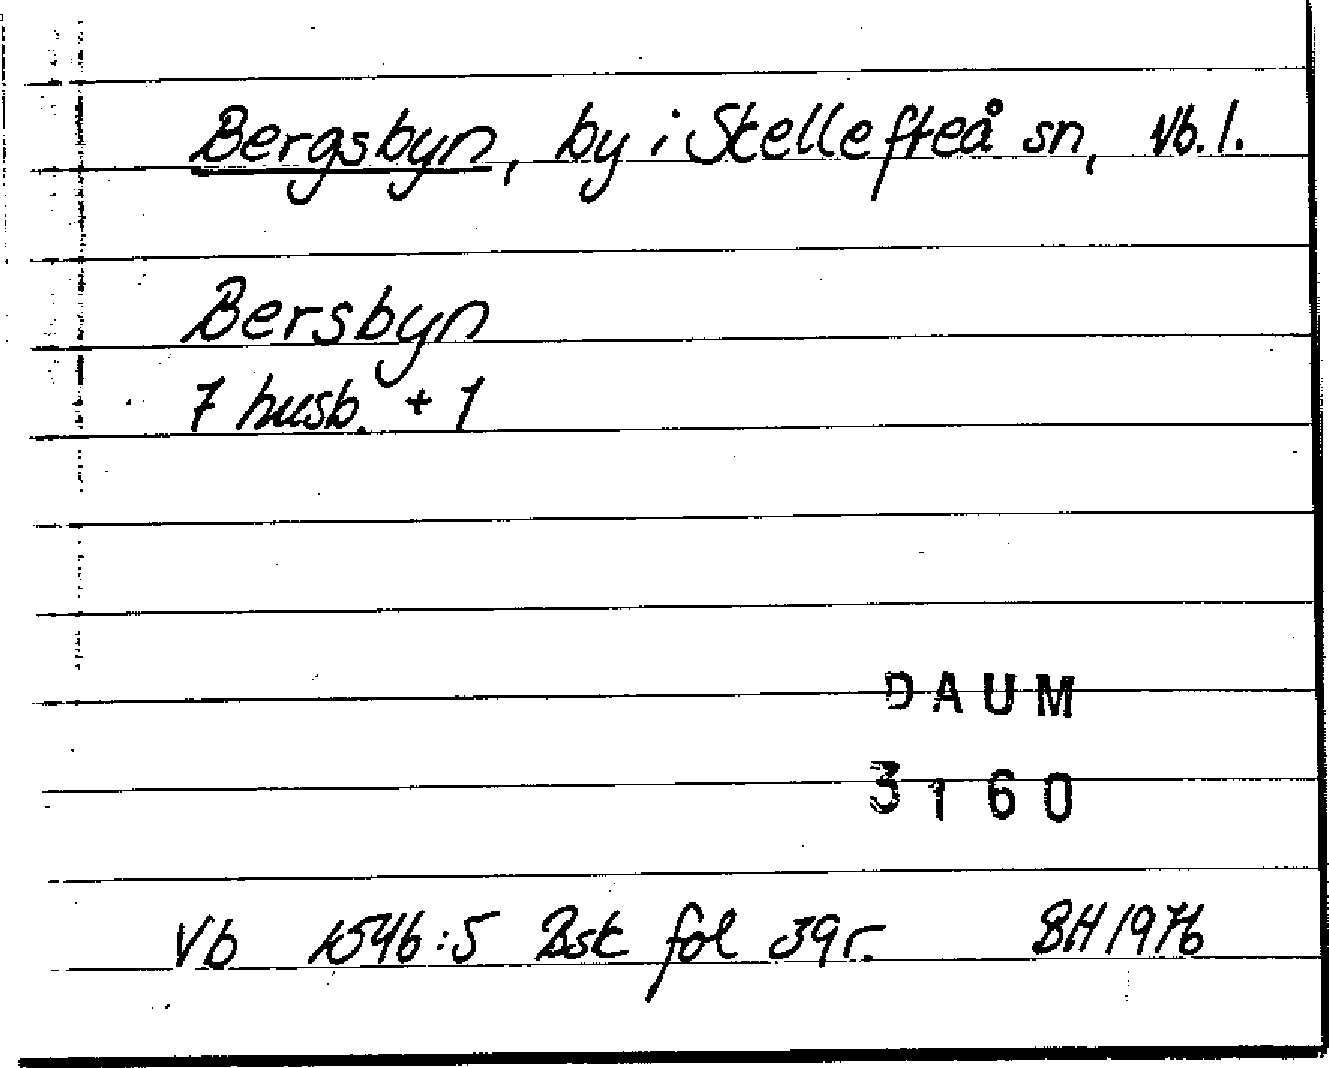 Bergsbyn, by i Skellefteå sn, Vb. l.
Bersbyn
7 husb. + 1
DAUM
3160
Vb 1546:5 Bsk fol 39r. BH 1976